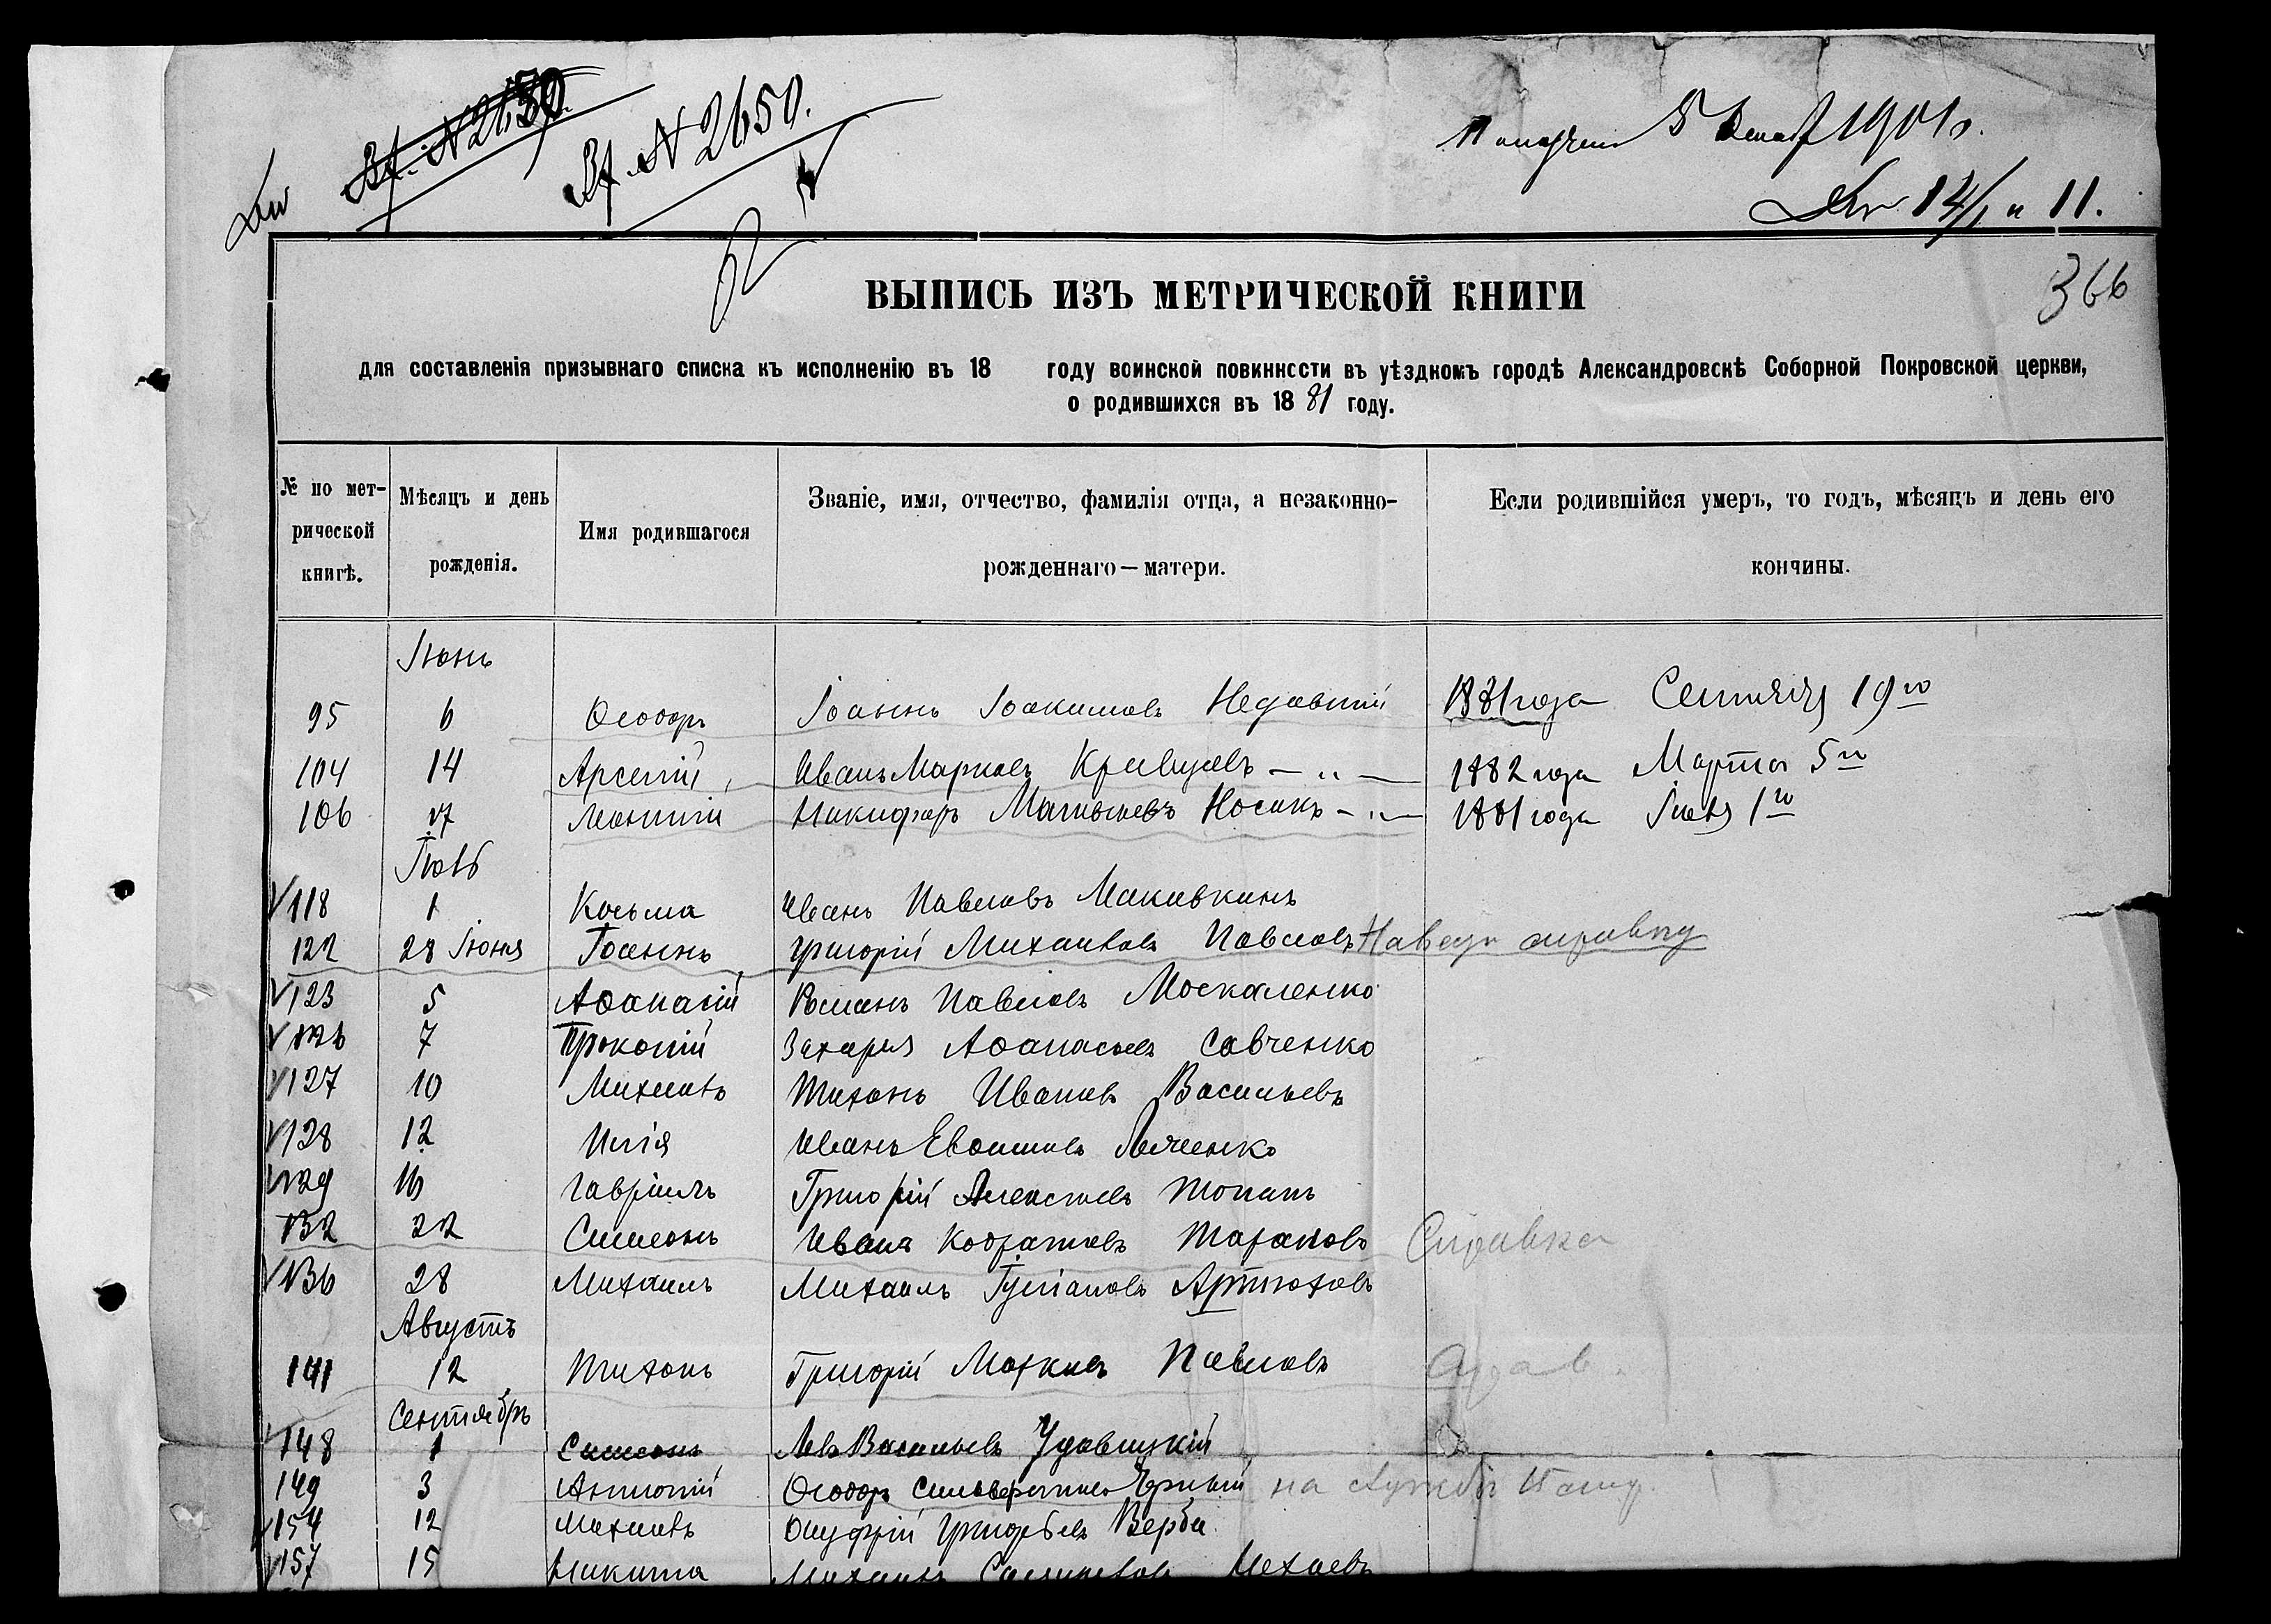 Вх. N 2650.
Вх. N 2650.
Получен 5 Декаб 1901 г.
366
ВЫПИСЬ ИЗЪ МЕТРИЧЕСКОЙ КНИГИ
для составленія призывнаго списка къ исполненію въ 18 году воинской повинности въ уѣздномъ городѣ Александровскѣ Соборной Покровской церкви,
о родившихся въ 18 81 году.
№ по мет-рической книгѣ.
Мѣсяцъ и день рожденія.
Имя родившагося
Званіе, имя, отчество, фамилія отца, а незаконно-рожденнаго—матери.
Если родившійся умеръ, то годъ, мѣсяцъ и день его кончины.
Іюнь
95 6 Ѳеодоръ Іоаннъ Іоакимовъ 1881 года Сентября 19го
104 14 Арсеній Иванъ Марковъ Кривцовъ — „ — 1882 года Марта 5го
106 17 Леонтій Никифоръ Матвѣевъ Носикъ — „ — 1881 года 1го
Іюль
118 1 Косьма Иванъ Павловъ Макивкинъ
122 28 Іюня Іоаннъ Григорій Михаиловъ Павловъ справку
123 5 Аѳанасій Романъ Павловъ Москаленко
126 7 Прокопій Захарія Аѳанасьевъ Савченко
127 10 Михаилъ Тихонъ Ивановъ Васильевъ
128 12 Илія Иванъ
129 16 Гавріилъ Григорій Алексѣевъ
132 22 Симеонъ Иванъ Кодратовъ Тарановъ Справка
136 28 Михаилъ Михаилъ Артюховъ
Августъ
141 12 Тихонъ Григорій Павловъ
Сентябрь
148 1 Симеонъ Левъ Васильевъ Удовицкій
149 3 Антоній Ѳеодоръ Сильверстовъ Чорный на службѣ
154 12 Михаилъ Онуфрій Григорьевъ Верба
157 15 Никита Михаилъ